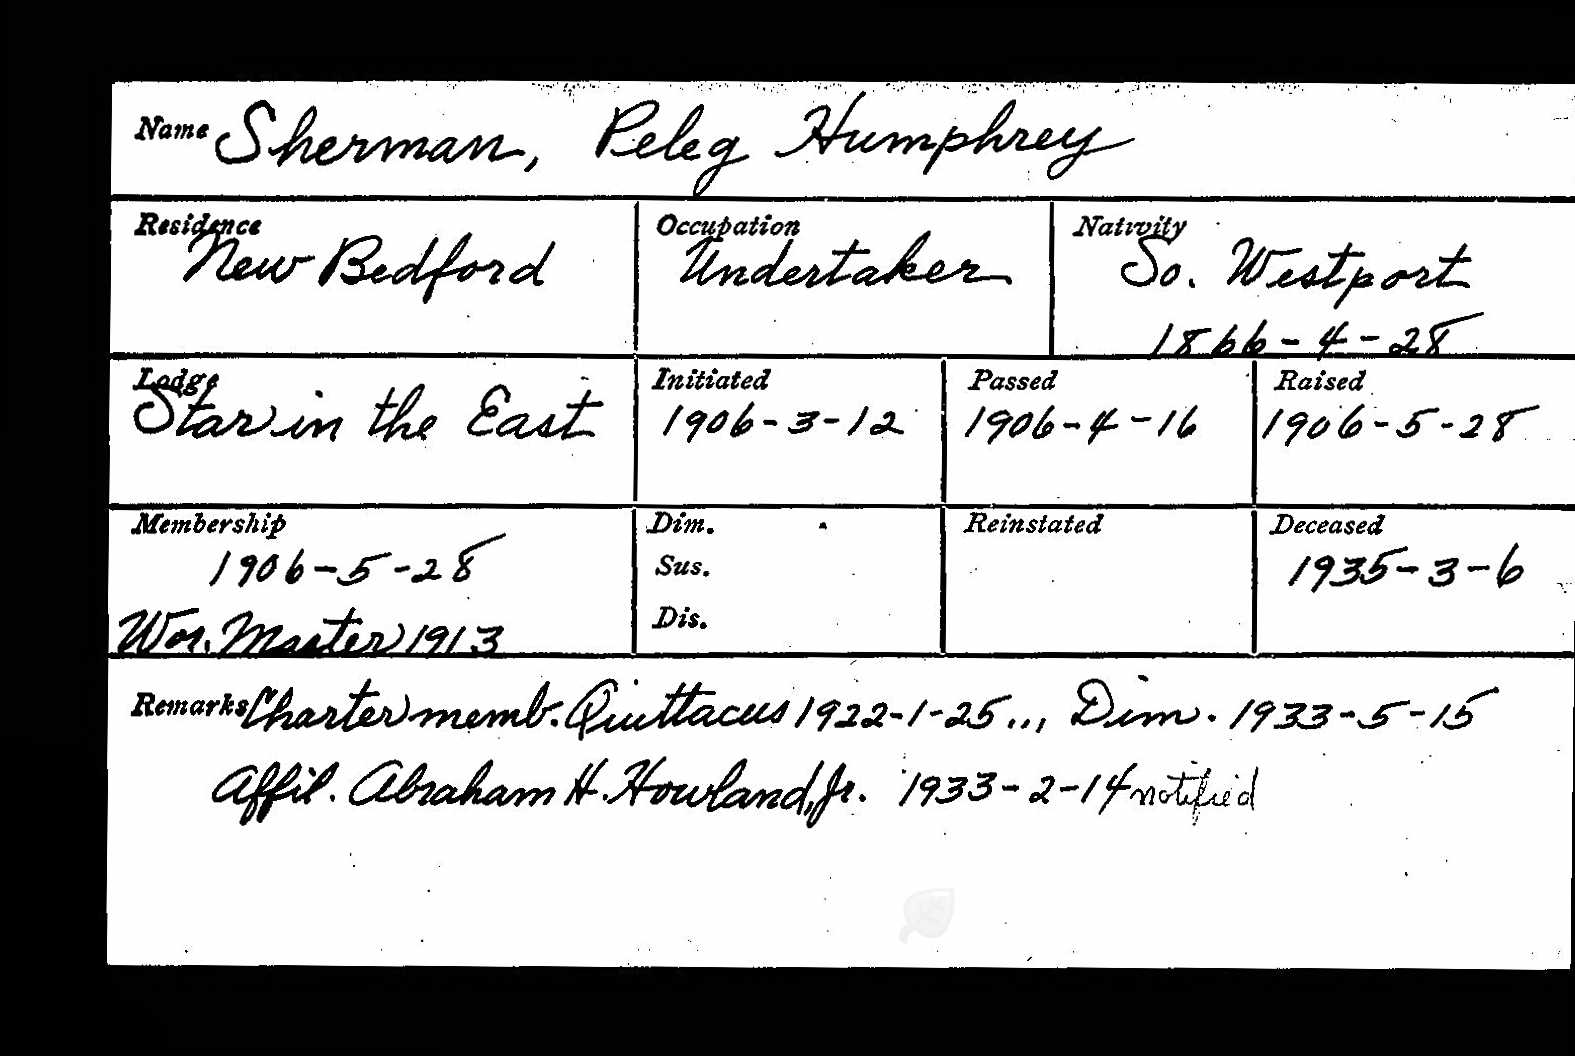 Name Sherman, Peleg Humphrey
Residence Occupation Nativity
New Bedford Undertaker So. Westport
1866-4-28
Lodge Initiated Passed Raised
Star in the East 1906-3-12 1906-4-16 1906-5-28
Membership Dim. Reinstated Deceased
1906-5-28 Sus. 1935-3-6
Wor. Master 1913 Dis.
Remarks Charter memb. Quittacus 1922-1-25.., Dim. 1933-5-15
Affil. Abraham H. Howland, Jr. 1933-2-14 notified